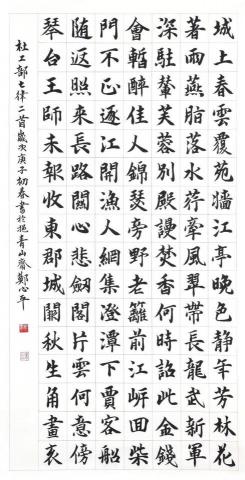 城上春雲覆苑墻江亭晚色靜年芳林花
著雨燕脂落水荇牽風翠帶長龍武新軍
深駐輦芙蓉別殿謾焚香何時詔此金錢
會暫醉佳人錦瑟旁野老籬前江岸回柴
門不正逐江開漁人網集澄潭下賈客船
隨返照來長路關心悲劍閣片雲何意傍
琴台王師未報收東郡城闕秋生角畫哀
杜工部七律二首歲次庚子初春書於挹青山齋鄭心平